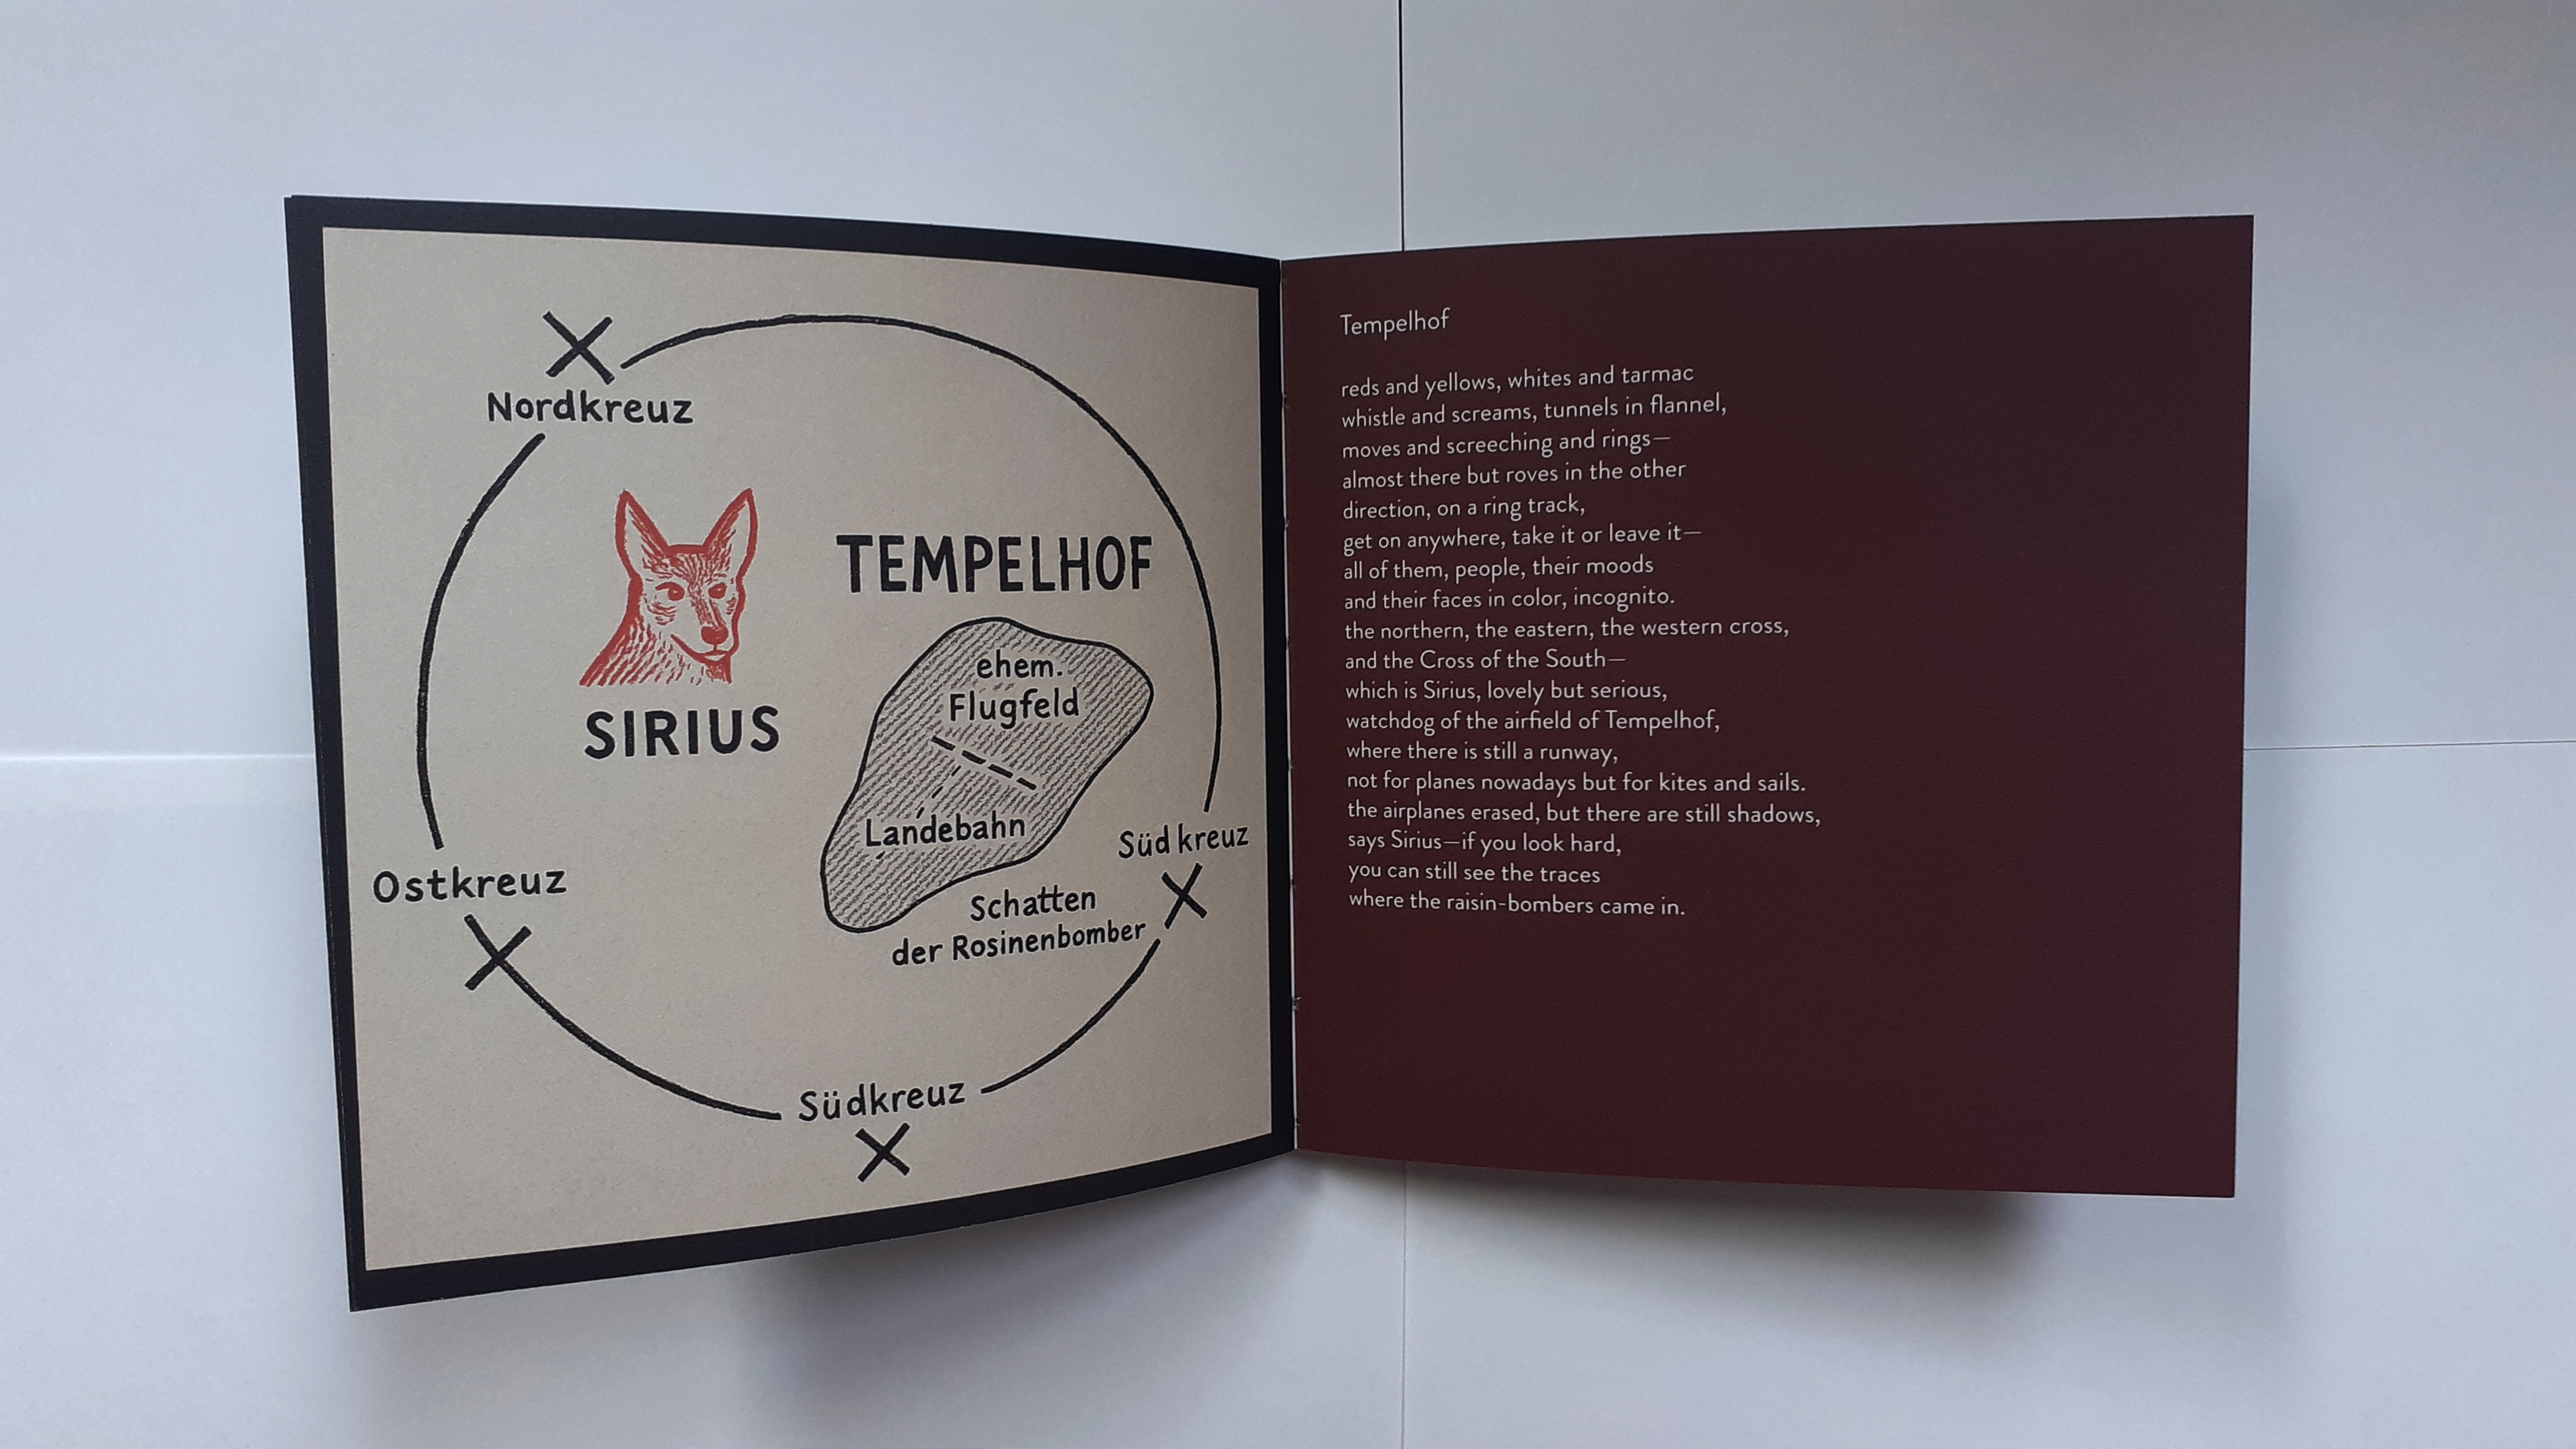 Nordkreuz
TEMPELHOF
SIRIUS
ehem.
Flugfeld
Landebahn
Südkreuz
Ostkreuz
Schatten
der Rosinenbomber
Südkreuz
Tempelhof
reds and yellows, whites and tarmac
whistle and screams, tunnels in flannel,
moves and screeching and rings—
almost there but roves in the other
direction, on a ring track,
get on anywhere, take it or leave it—
all of them, people, their moods
and their faces in color, incognito.
the northern, the eastern, the western cross,
and the Cross of the South—
which is Sirius, lovely but serious,
watchdog of the airfield of Tempelhof,
where there is still a runway,
not for planes nowadays but for kites and sails.
the airplanes erased, but there are still shadows,
says Sirius—if you look hard,
you can still see the traces
where the raisin-bombers came in.